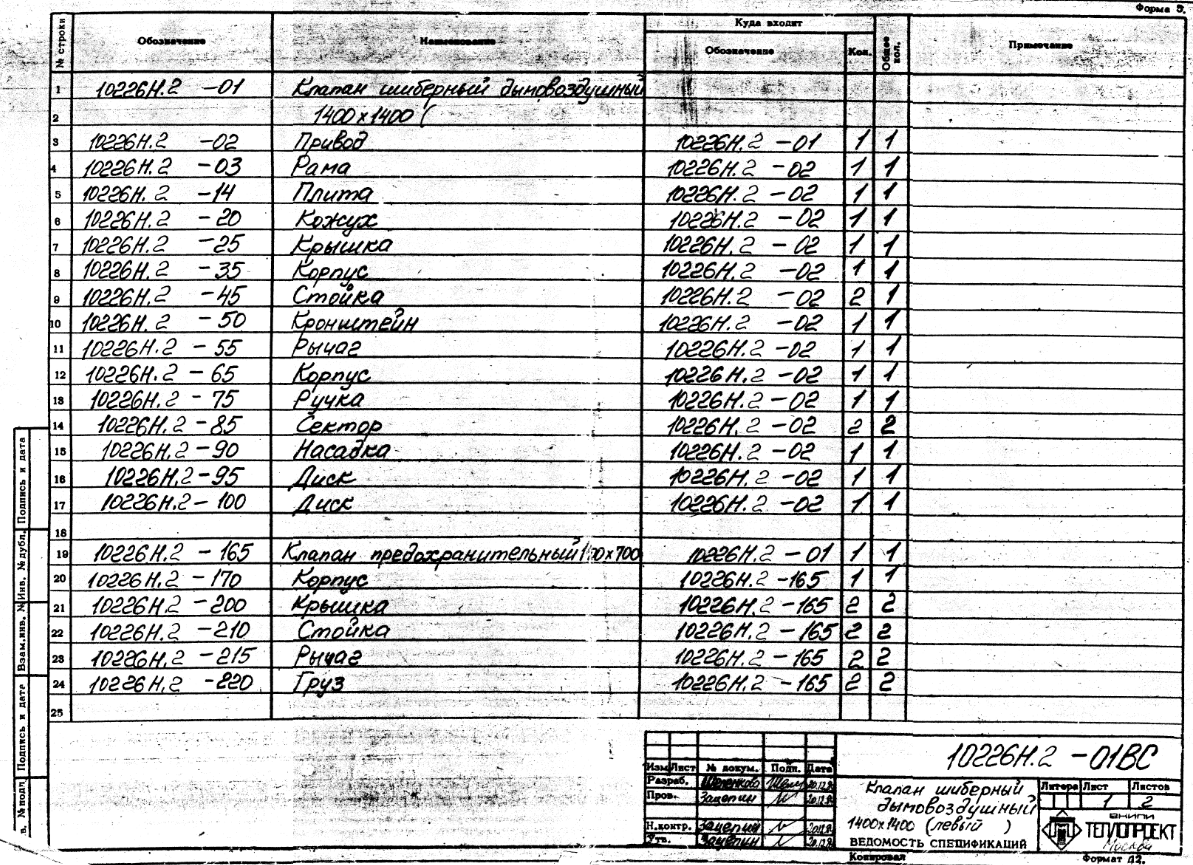 Форма 5.
№ строки Обозначение Наименование Куда входит Общее кол. Примечание
Обозначение Кол.
1 10226Н.2 -01 Клапан шиберный дымовоздушный
2 1400х1400 (
3 10226Н.2 -02 Привод 10226Н.2 -01 1 1
4 10226Н.2 -03 Рама 10226Н.2 -02 1 1
5 10226Н.2 -14 Плита 10226Н.2 -02 1 1
6 10226Н.2 -20 Кожух 10226Н.2 -02 1 1
7 10226Н.2 -25 Крышка 10226Н.2 -02 1 1
8 10226Н.2 -35 Корпус 10226Н.2 -02 1 1
9 10226Н.2 -45 Стойка 10226Н.2 -02 2 1
10 10226Н.2 -50 Кронштейн 10226Н.2 -02 1 1
11 10226Н.2 -55 Рычаг 10226Н.2 -02 1 1
12 10226Н.2 -65 Корпус 10226Н.2 -02 1 1
13 10226Н.2 -75 Ручка 10226Н.2 -02 1 1
14 10226Н.2 -85 Сектор 10226Н.2 -02 2 2
15 10226Н.2 -90 Насадка 10226Н.2 -02 1 1
16 10226Н.2 -95 Диск 10226Н.2 -02 1 1
17 10226Н.2 -100 Диск 10226Н.2 -02 1 1
18
19 10226Н.2 -165 Клапан предохранительный х700 10226Н.2 -01 1 1
20 10226Н.2 -170 Корпус 10226Н.2 -165 1 1
21 10226Н.2 -200 Крышка 10226Н.2 -165 2 2
22 10226Н.2 -210 Стойка 10226Н.2 -165 2 2
23 10226Н.2 -215 Рычаг 10226Н.2 -165 2 2
24 10226Н.2 -220 Груз 10226Н.2 -165 2 2
25
Подпись и дата
Инв. № дубл.
Взам.инв. №
Подпись и дата
в. № подл.
10226Н.2 -01ВС
Изм Лист № докум. Подп. Дата
Разраб.
Пров. Зацепин
Н.контр. Зацепин
Утв. Зацепин
Клапан шиберный
дымовоздушный
1400х1400 (левый )
ВЕДОМОСТЬ СПЕЦИФИКАЦИЙ
Литера Лист Листов
1 2
ВНИПИ
ТЕПЛОПРОЕКТ
Москва
Копировал
Формат А2.